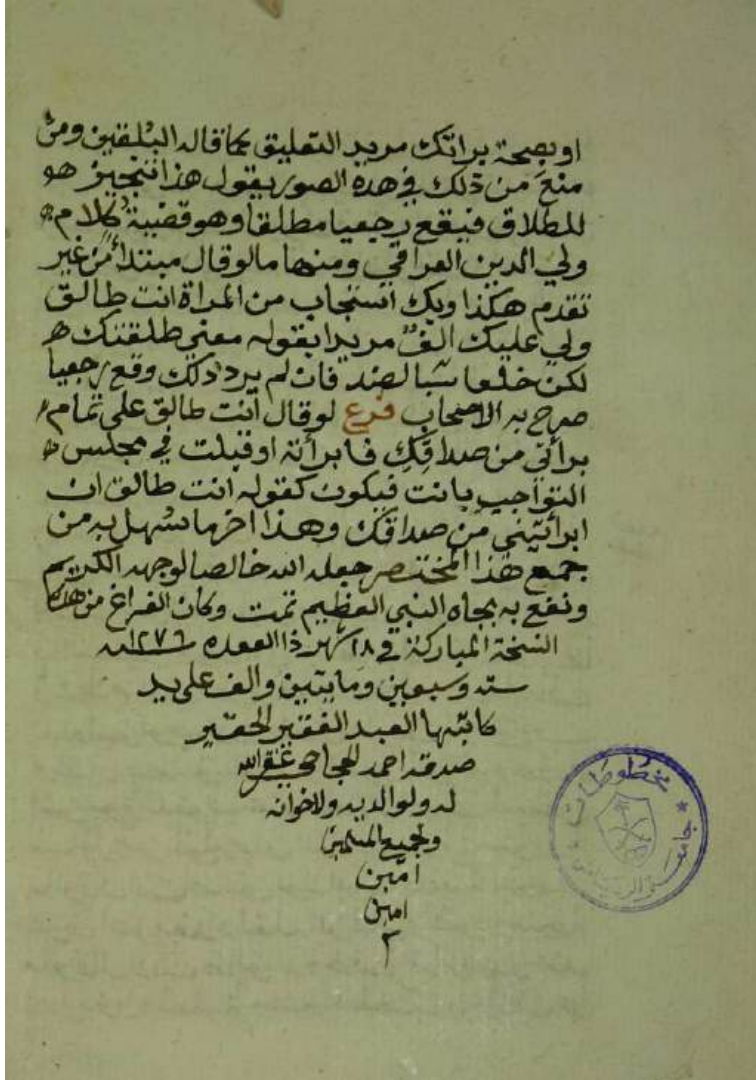 او بصحة براتك مريد التعليق كما قاله البلقيني ومن
منع من ذلك في هذه الصور يقول هذا تنجيز
للطلاق فيقع رجعيا مطلقا وهو قضية كلام
ولي الدين العراقي ومنها ما لو قال مبتدأ من غير
تقدم هكذا وبك استجاب من المراة انت طالق
ولي عليك الف مريدا بقوله معنى طلقتك
لكن خلعا شبا لصد فان لم يرد ذلك وقع رجعيا
صرح به الاصحاب فرع لو قال انت طالق على تمام
براتي من صداقك فابراته او قبلت في مجلس
التواجب بانت فيكون كقوله انت طالق ان
ابرأتيني من صداقك وهذا اخر ما سهل به من
جمع هذا المختصر جعله الله خالصا لوجهه الكريم
ونفع به بجاه النبي العظيم تمت وكان الفراغ من هذه
النسخة المباركة في ١٨ شهر ذا القعده سنة ١٢٧٦
سته وسبعين ومايتين والف على يد
كاتبها العبد الفقير الحقير
صدقه احمد غفر الله
له ولوالديه ولاخوانه
ولجميع المسلمين
امين
امين
٢
مخطوطات
جامعة الرياض